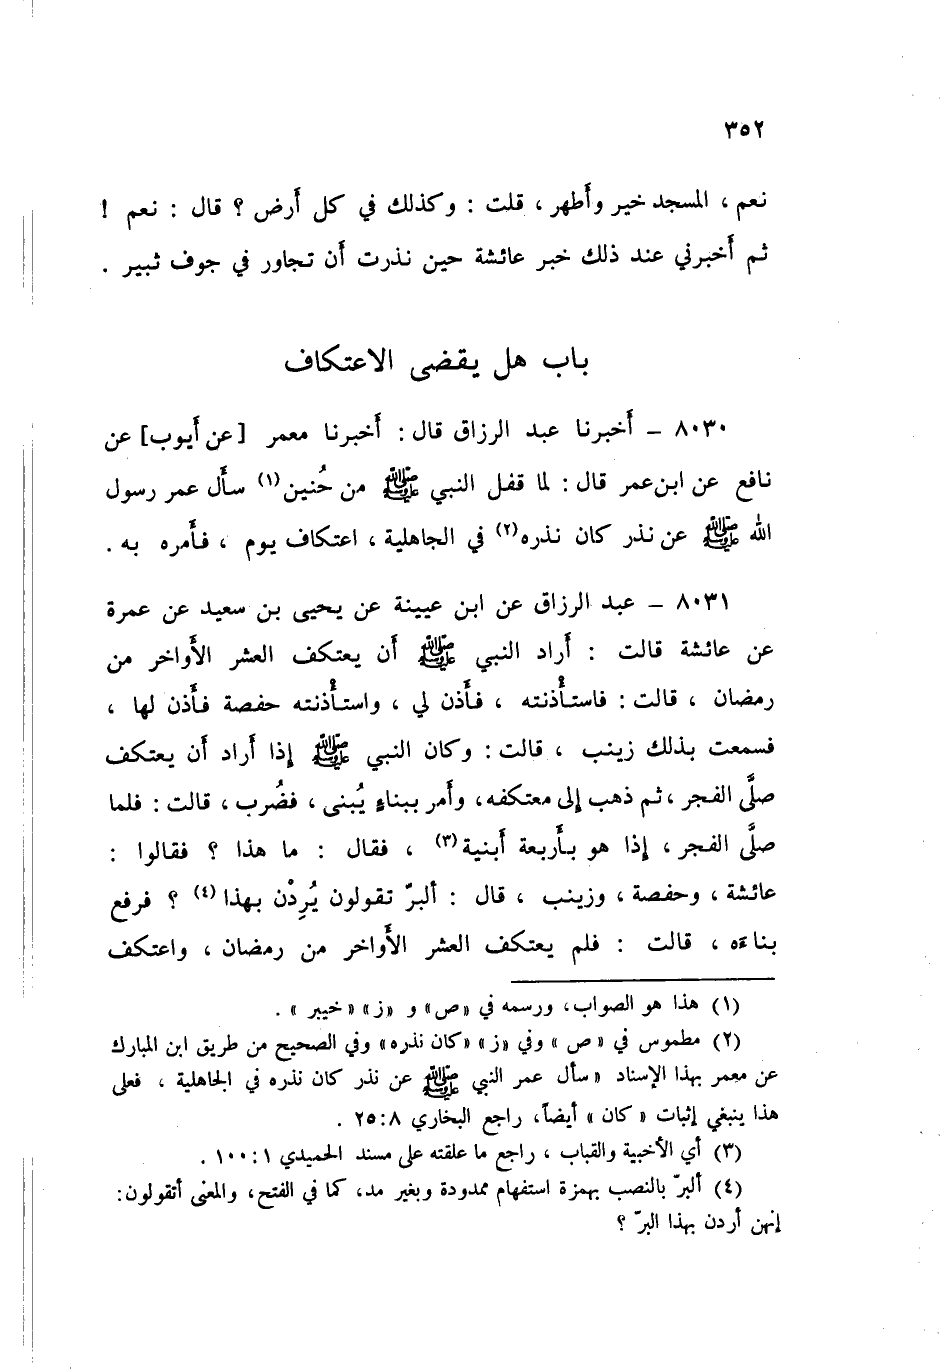 ٣٥٢
نعم ، المسجد خير وأَطهر ، قلت : وكذلك في كل أَرض ؟ قال : نعم !
ثم أَخبرني عند ذلك خبر عائشة حين نذرت أَن تجاور في جوف ثبير .
باب هل يقضى الاعتكاف
٨٠٣٠ – أَخبرنا عبد الرزاق قال : أَخبرنا معمر [عن أَيوب] عن
نافع عن ابن عمر قال : لما قفل النبي ﷺ من حُنين (١) سأَل عمر رسول
الله ﷺ عن نذر كان نذره (٢) في الجاهلية ، اعتكاف يوم ، فأَمره به .
٨٠٣١ – عبد الرزاق عن ابن عيينة عن يحيى بن سعيد عن عمرة
عن عائشة قالت : أَراد النبي ﷺ أَن يعتكف العشر الأَواخر من
رمضان ، قالت : فاستأْذنته ، فأَذن لي ، واستأْذنته حفصة فأَذن لها ،
فسمعت بذلك زينب ، قالت : وكان النبي ﷺ إذا أَراد أَن يعتكف
صلَّى الفجر ، ثم ذهب إلى معتكفه، وأَمر ببناءٍ يُبنى ، فضُرب ، قالت : فلما
صلَّى الفجر ، إذا هو بأَربعة أَبنية (٣) ، فقال : ما هذا ؟ فقالوا :
عائشة ، وحفصة ، وزينب ، قال : ألبرّ تقولون يُرِدْن بهذا (٤) ؟ فرفع
بناءَه ، قالت : فلم يعتكف العشر الأَواخر من رمضان ، واعتكف
(١) هذا هو الصواب، ورسمه في «ص» و «ز» «خيبر» .
(٢) مطموس في «ص» وفي «ز» «كان نذره» وفي الصحيح من طريق ابن المبارك
عن معمر بهذا الإسناد «سأل عمر النبي ﷺ عن نذر كان نذره في الجاهلية ، فعلى
هذا ينبغي إثبات «كان» أيضاً، راجع البخاري ٨ : ٢٥ .
(٣) أي الأخبية والقباب ، راجع ما علقته على مسند الحميدي ١ : ١٠٠ .
(٤) ألبرّ بالنصب بهمزة استفهام ممدودة وبغير مد، كما في الفتح، والمعنى أتقولون:
إنهن أردن بهذا البرّ ؟